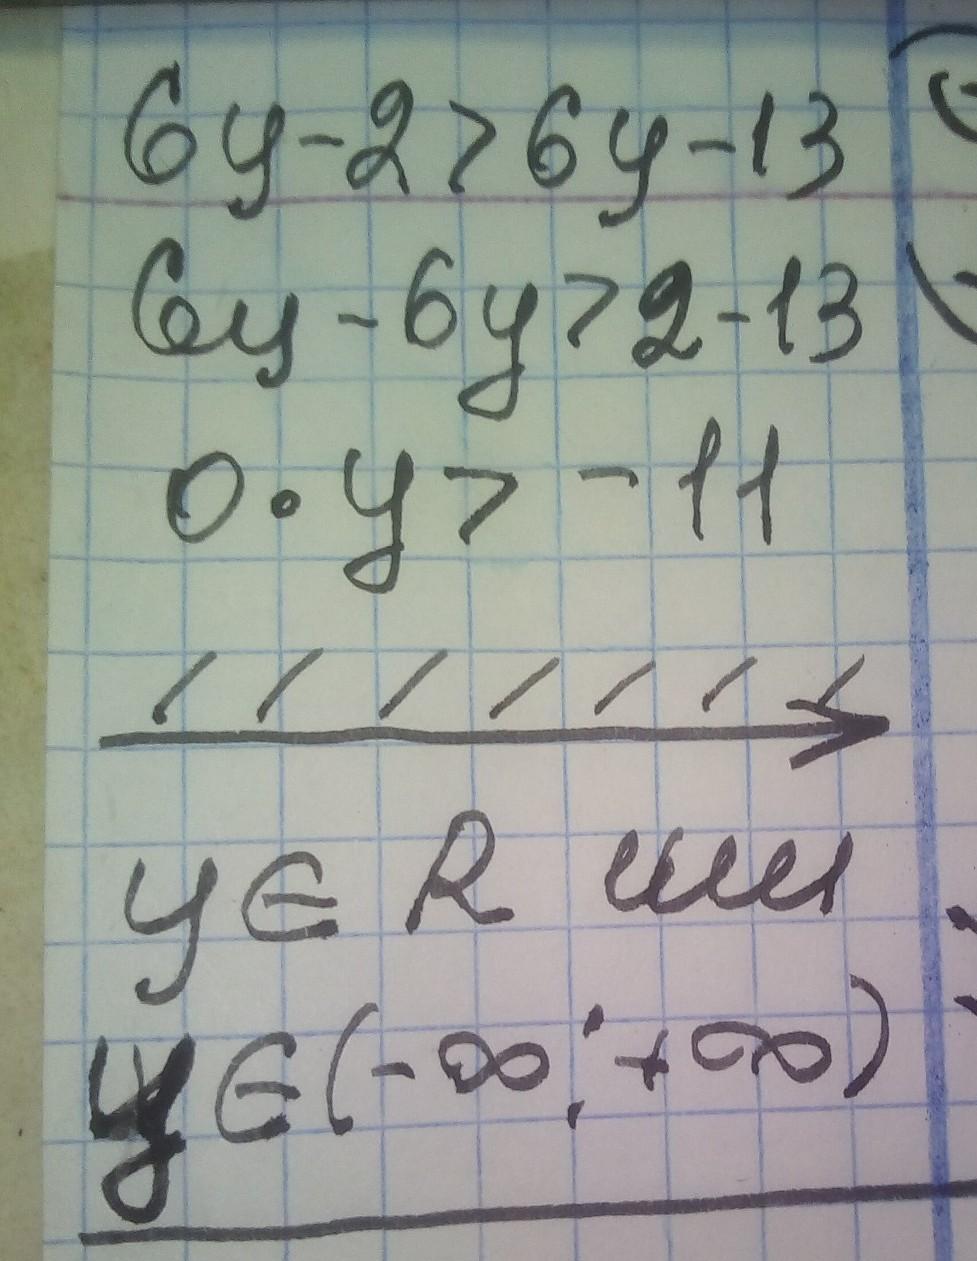 6y-2>6y-13
6y-6y>2-13
0·y>-11
y∈R или
y∈(-∞;+∞)